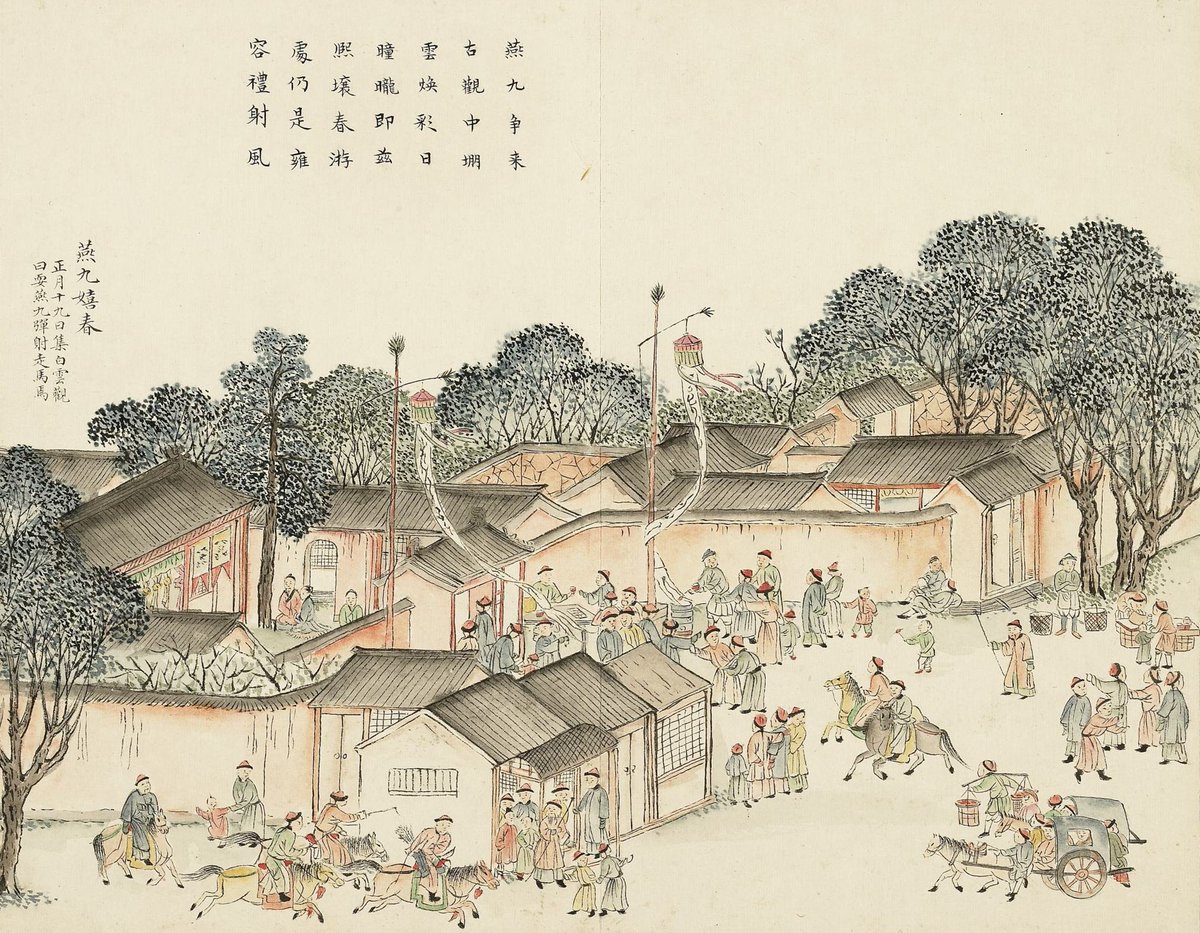 燕九争来
古觀中堋
雲煥彩日
曈曨即茲
熙壤春游
處仍是雍
容禮射風
燕九嬉春
正月十九日集白雲觀
曰耍燕九彈射走馬焉